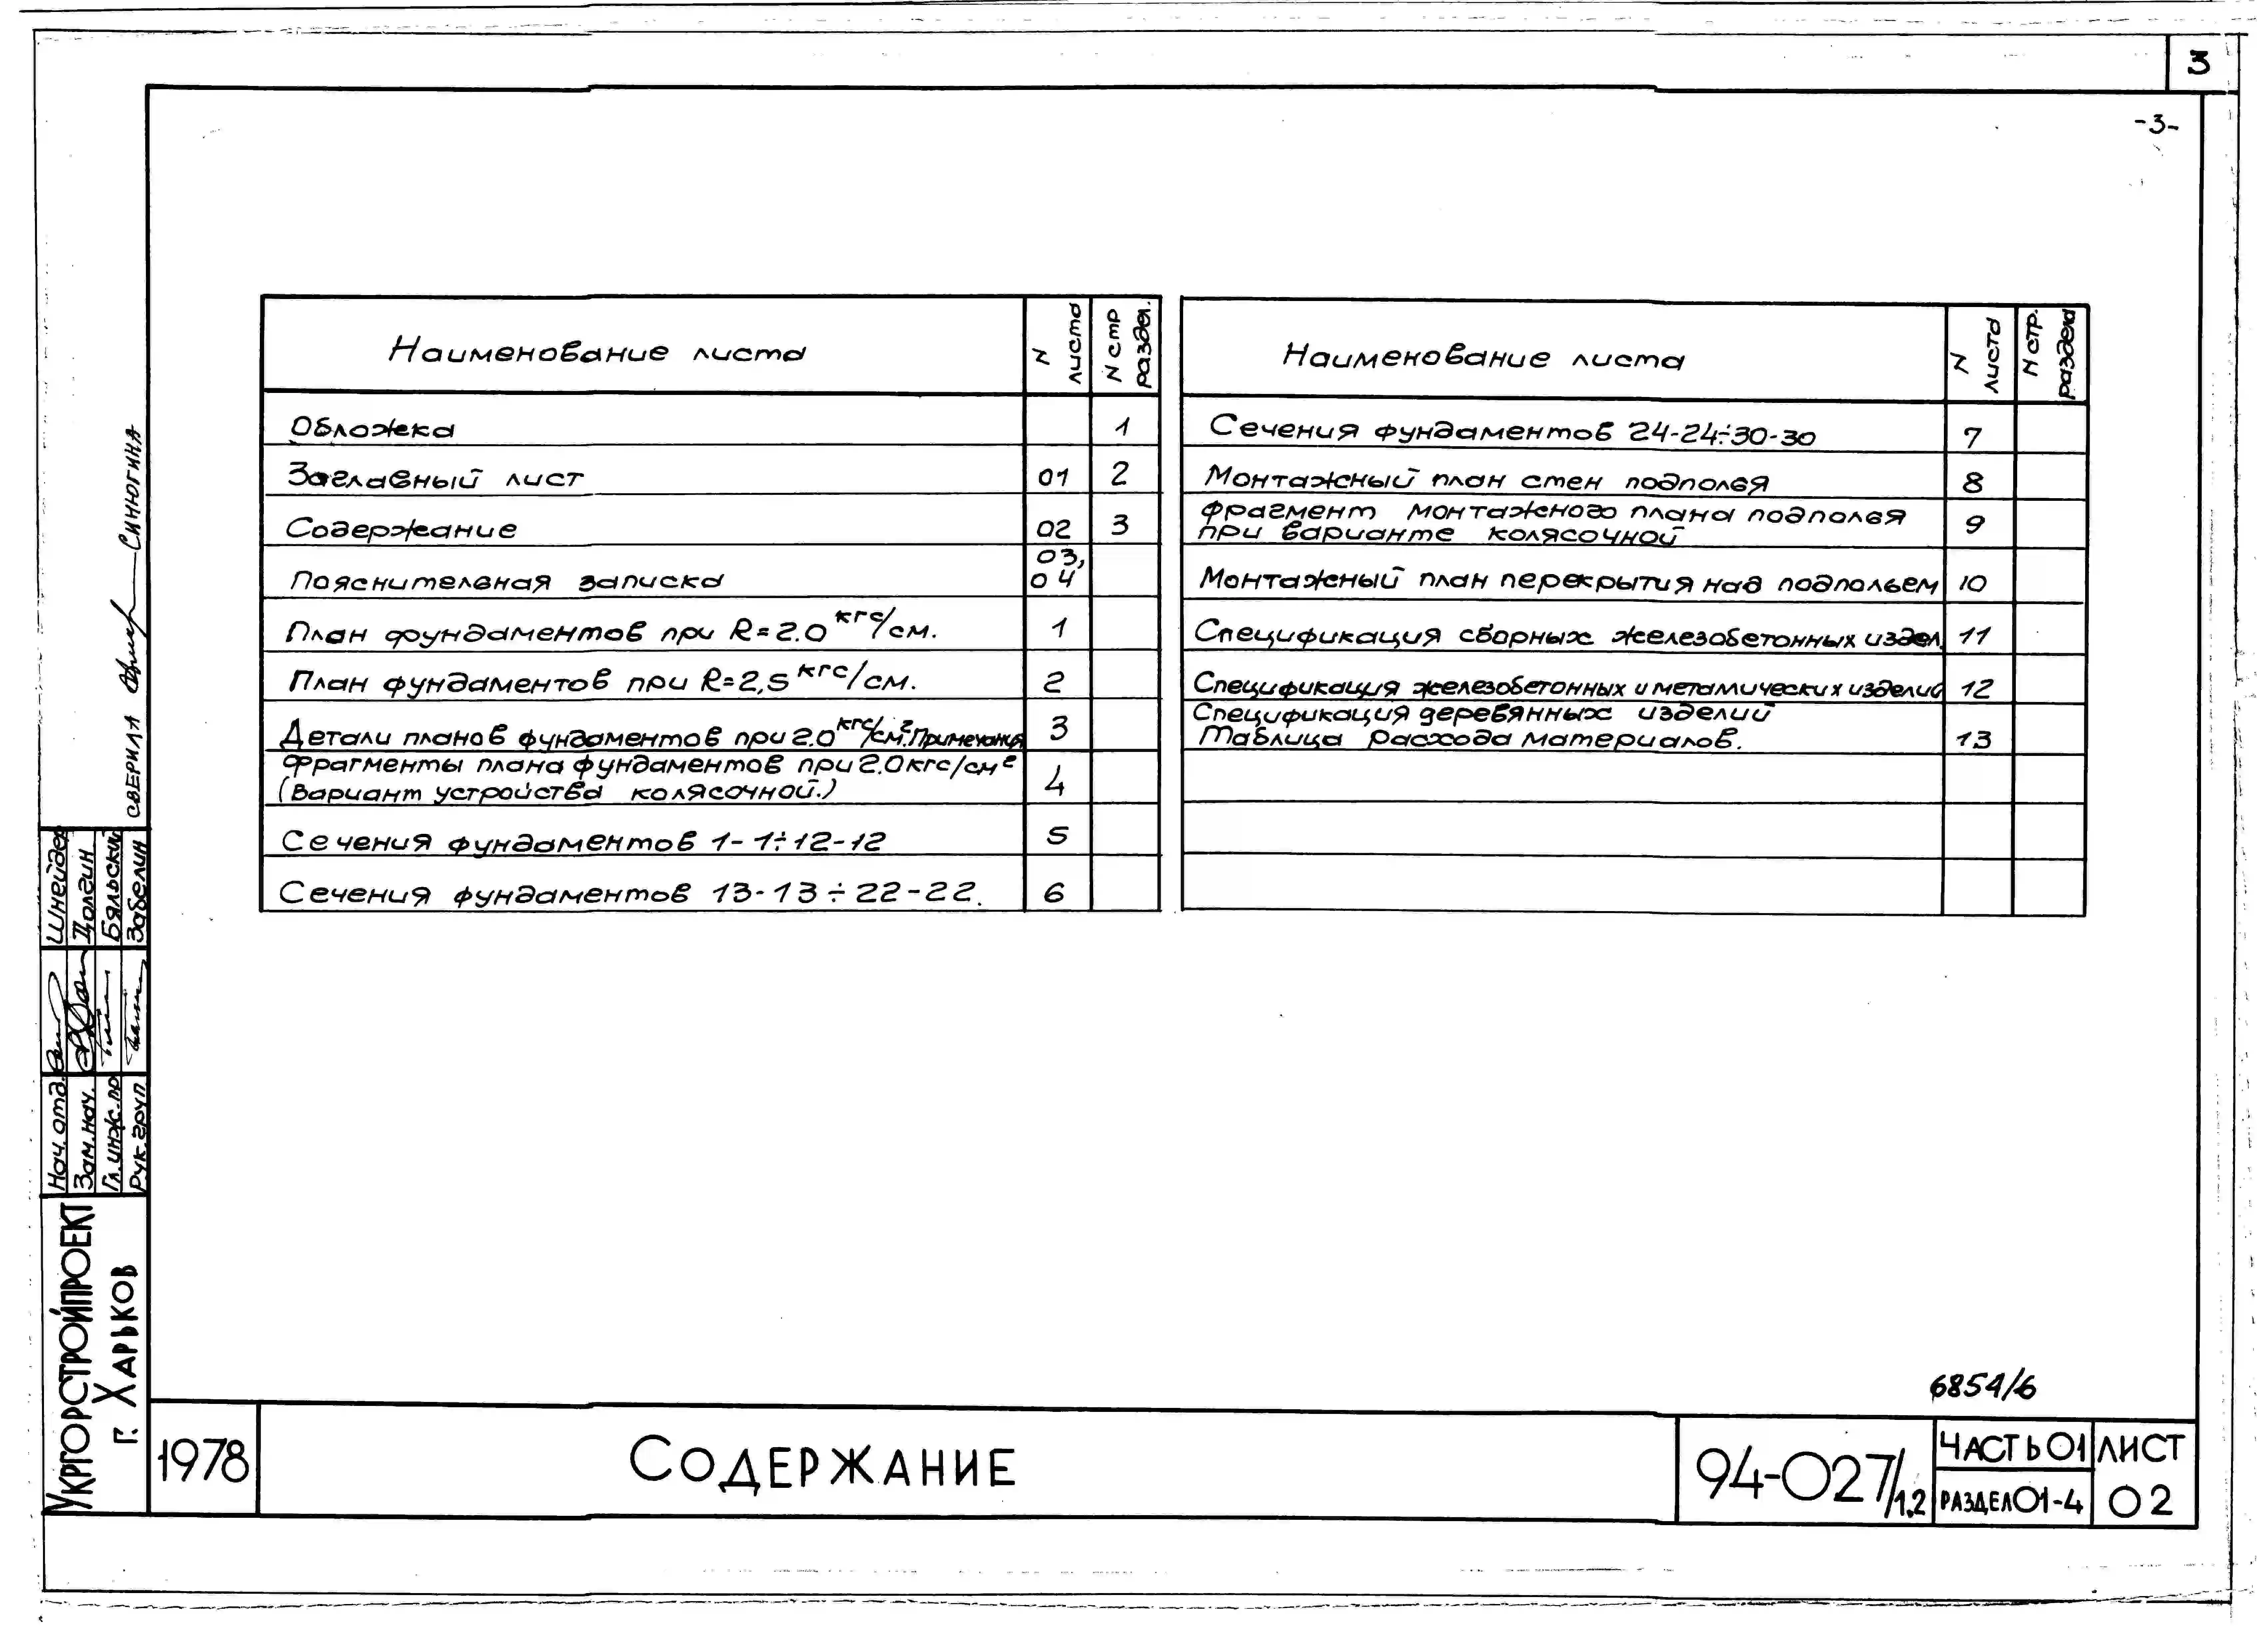 3
-3-
Наименование листа
N листа
N стр раздел.
Обложка 1
Заглавный лист 01 2
Содержание 02 3
Пояснительная записка 03, 04
План фундаментов при R=2.0 кгс/см. 1
План фундаментов при R=2,5 кгс/см. 2
Детали планов фундаментов при 2.0 кгс/см². Примечания 3
Фрагменты плана фундаментов при 2.0 кгс/см²
(Вариант устройства колясочной.) 4
Сечения фундаментов 1-1÷12-12 5
Сечения фундаментов 13-13÷22-22. 6
Наименование листа
N листа
N стр. раздела
Сечения фундаментов 24-24÷30-30 7
Монтажный план стен подполья 8
Фрагмент монтажного плана подполья
при варианте колясочной 9
Монтажный план перекрытия над подпольем 10
Спецификация сборных железобетонных издел. 11
Спецификация железобетонных и металических изделий 12
Спецификация деревянных изделий
Таблица расхода материалов. 13
сверила Синюгина
Нач. отд. Шнейдер
Зам. нач. Цолгин
Гл. инж. пр Бяльский
Рук. груп. Забелин
Укргорстройпроект
г. Харьков
6854/6
1978
Содержание
94-027/1.2
Часть 01
Раздел 01-4
Лист
02